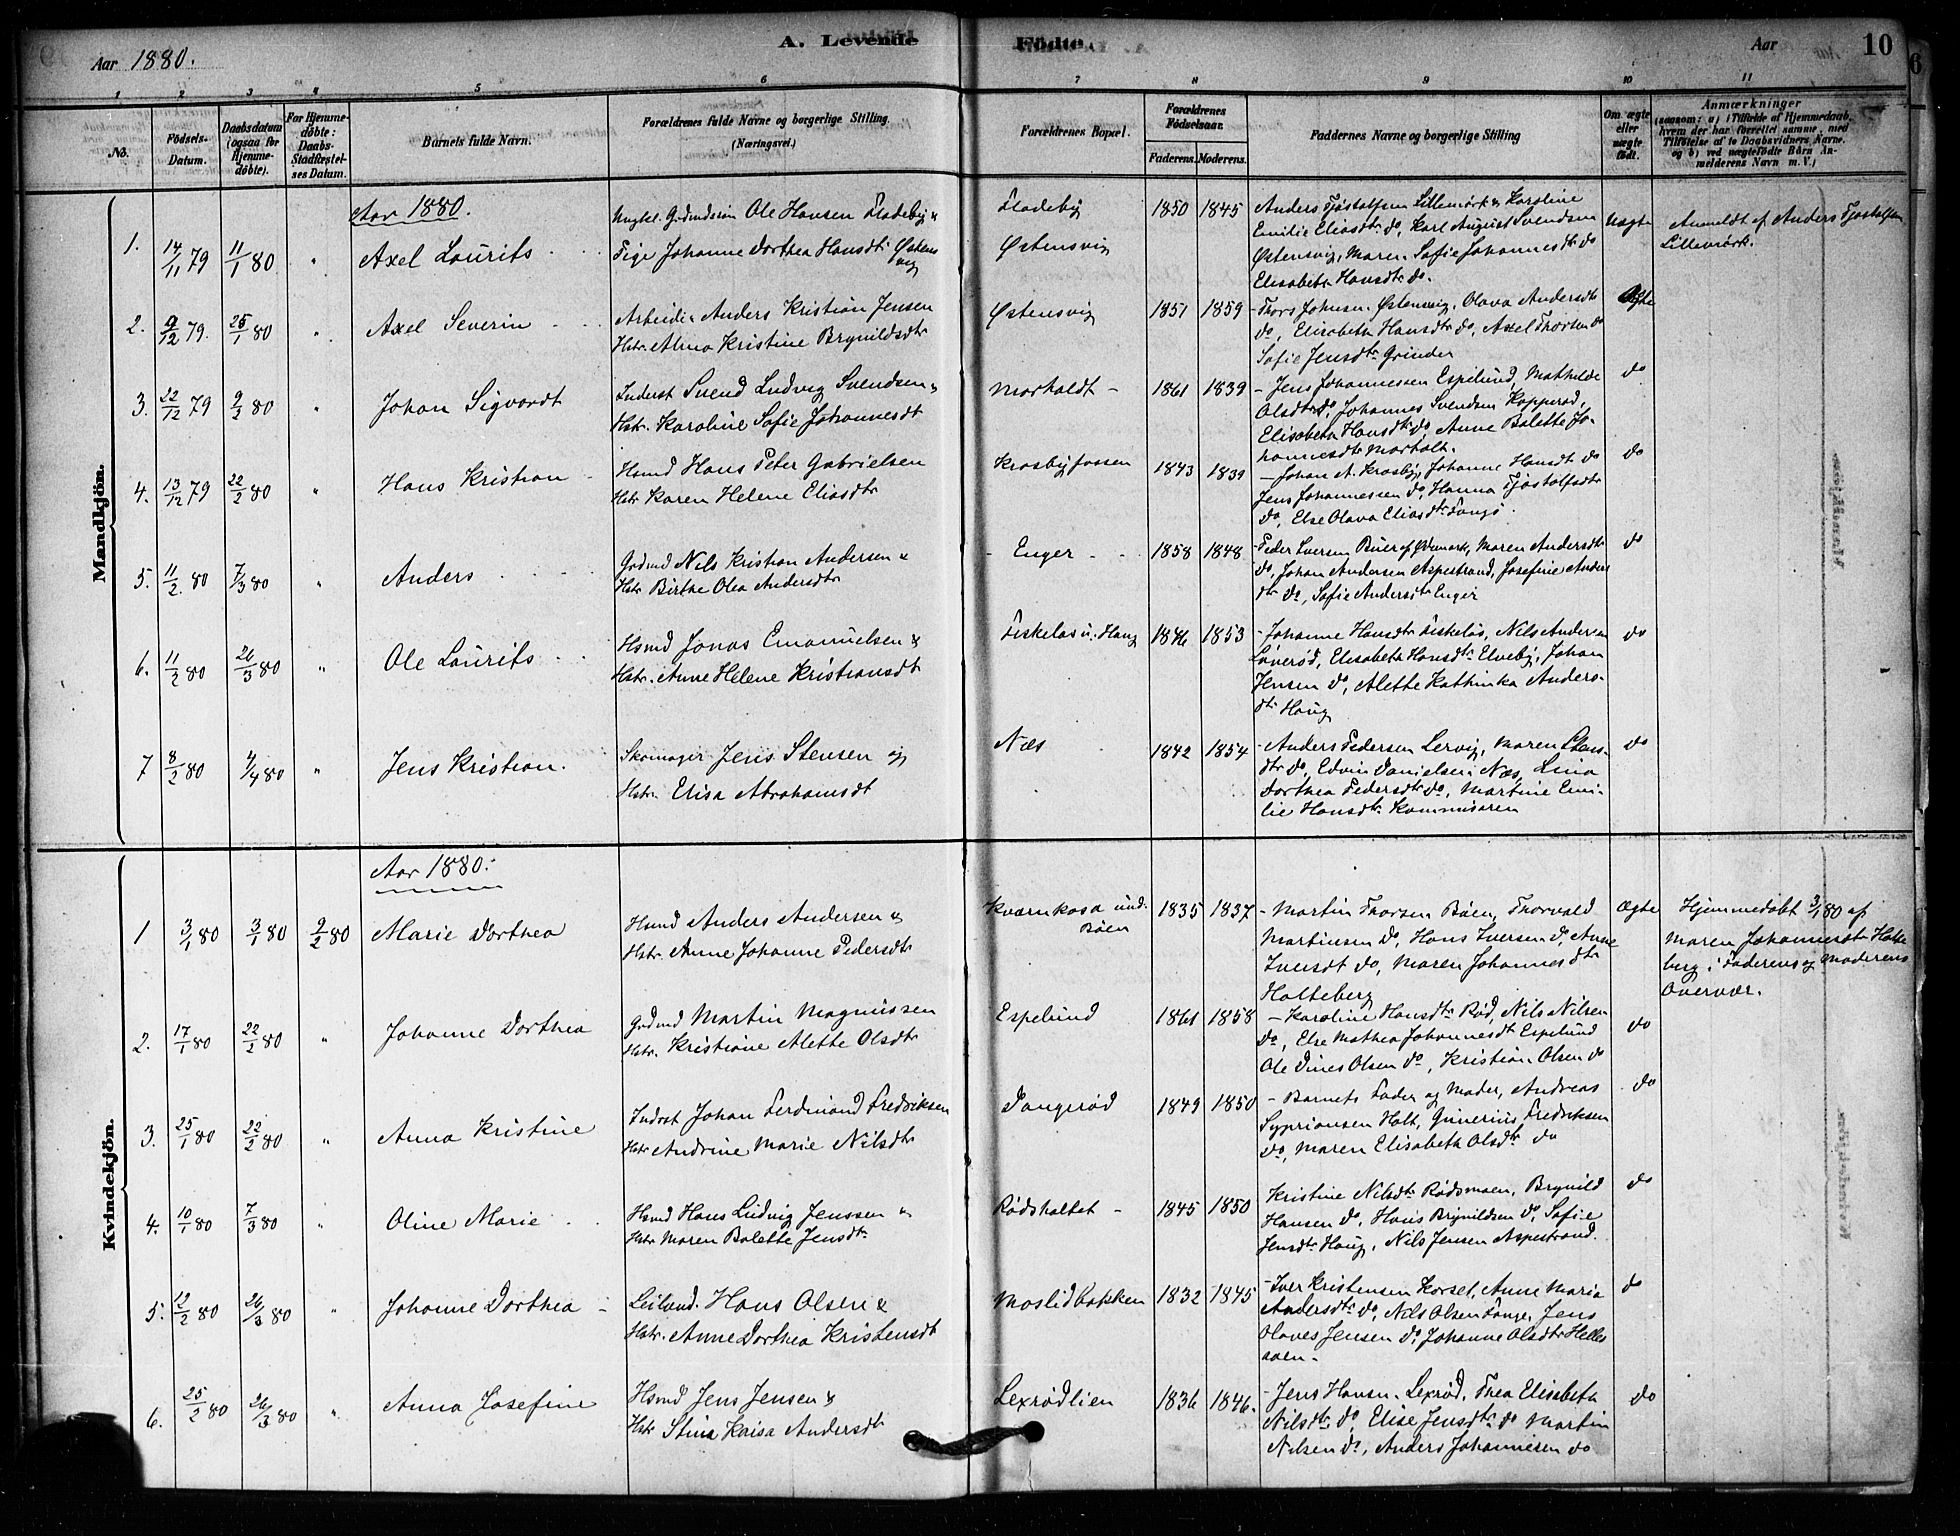 Aar 1880.
A. Levende Födte.
Aar 10
1 2 3 4 5 6 7 8 9 10 11
No.
Födsels-Datum.
Daabsdatum (ogsaa for Hjemme-döbte).
For Hjemme-döbte: Daabs-Stadfæstel-ses Datum.
Barnets fulde Navn.
Forældrenes fulde Navne og borgerlige Stilling (Næringsvei.)
Forældrenes Bopæl.
Forældrenes Födselsaar.
Faderens. Moderens.
Faddernes Navne og borgerlige Stilling
Om ægte eller uægte födt.
Anmærkninger
(saasom: a) i Tilfælde af Hjemmedaab, hvem der har forrettet samme, med Tilföielse af to Daabsvidners Navne. og b) ved uægtefödte Börn An-melderens Navn m. V.)
Mandkjön.
Aar 1880.
1. 14/11 79 11/1 80 " Axel Laurits
Ungkl. Grdmdssön Ole Hansen Fladeby &
Pige Johanne Dorthea Hansdtr Østensvig
Fladeby
Østensvig
1850 1845
Anders Fjøstolfsen Lillemörk & Karoline
Emilie Eliasdtr do, Karl August Svendsen
Østensvig, Maren Sofie Johannesdtr do
Elisabeth Hansdtr do.
Uægte
Anmeldt af Anders Fjøstolfsen
Lillemörk.
2. 9/12 79. 25/1 80 " Axel Severin
Arbeider Anders Kristian Jensen
Hstr. Alma Kristine Brynildsdtr
Østensvig
1851 1859
Thors Johnsen Østensvig, Olava Andersdtr
do, Elisabeth Hansdtr do, Axel Thorsen do
Sofie Jensdtr Grinder
Ægte
3. 22/12 79 9/2 80 " Johan Sigvardt
Inderst Svend Ludvig Svendsen &
Hstr. Karoline Sofie Johannesdt
Morholdt
1861 1839
Jens Johannessen Espelund, Mathilde
Olsdtr do, Johannes Svendsen Kopperød,
Elisabeth Hansdtr do Anne Bolette Jo-
hannesdtr Morholt.
do
4. 13/12 79 22/2 80 " Hans Kristian
Hsmd Hans Peter Gabrielsen
Hstr Karen Helene Eliasdtr
Krosbyfossen
1843 1839
Johan A. Krosby, Johanne Hansdt do
Jens Johannessen do, Hanna Fjøstolfsdtr
do, Else Olava Eliasdtr
do
5. 11/2 80 7/3 80 " Anders
Grdmd Nils Kristian Andersen &
Hstr Birthe Olea Andersdtr
Enger
1858 1848
Peder Iversen Buer af Ødemark, Maren Andersdtr
do, Johan Andersen Aspestrand, Josefine Anders
dtr do, Sofie Andersdtr Enger
do
6. 11/2 80 26/3 80 " Ole Laurits
Hsmd Jonas Emanuelsen &
Hstr. Anne Helene Kristiansdt
Fiskeløs u. Haug
1846 1853
Johanne Hansdtr Fiskeløs, Nils Andersen
Løverød, Elisabeth Hansdtr Elveby, Johan
Jensen do, Alette Kathinka Anders-
dtr Haug
do
7 8/2 80 4/4 80 " Jens Kristian.
Skomager Jens Stensen og
Hstr. Elisa Abrahamsdt
Næs
1842 1854
Anders Pedersen Lervig, Maren Stens-
dtr do, Edvin Danielsen Næs, Lina
Dorthea Pedersdtr do, Martine Emi-
lie Hansdtr Kommisæren
do
Kvindekjön.
Aar 1880.
1 3/1 80 3/1 80 9/2 80 Marie Dorthea
Hsmd Anders Andersen &
Hstr. Anne Johanne Pedersdtr
Kværnkasa und. Böen
1835 1837
Martin Thorsen Böen, Thorvald
Martinsen do, Hans Iversen do, Anne
Iversdt do, Maren Johannesdtr
Holteberg
Ægte
Hjemmedøbt 3/1 80 af
Maren Johannesdtr Holte
berg i Faderens og Moderens
Overvær.
2. 17/1 80 22/2 80 " Johanne Dorthea
Grdmd Martin Magnussen
Hstr. Kristiane Alette Olsdtr
Espelund
1861 1858
Karoline Hansdtr Rød, Nils Nilsen
do, Else Mathea Johannesdt Espelund
Ole Dines Olsen do, Kristian Olsen do
do
3. 25/1 80 22/2 80 " Anna Kristine
Indrst Johan Ferdinand Fredriksen
Hstr Andrine Marie Nilsdtr
Dangerød
1849 1850
Barnets Fader og Moder, Andreas
Syprionsen Holt, Gunerius Fredriksen
do, Maren Elisabeth Olsdtr do
do
4. 10/1 80 7/3 80 " Oline Marie
Hsmd Hans Ludvig Jenssen &
Hstr Maren Bolette Jensdtr
Rødsholtet
1845 1850
Kristine Nilsdtr Rødsmoen, Brynild
Hansen do, Hans Brynildsen do, Sofie
Jensdtr Haug, Nils Jensen Aspestrand.
do
5. 12/2 80 26/3 80 " Johanne Dorthea
Leilænd. Hans Olsen &
Hstr. Anne Dorthea Kristensdt
Moslidbakken
1832 1845
Iver Kristensen Korset, Anne Maria
Andersdtr do, Nils Olsen Tange, Jens
Olaves Jensen do, Johanne Olsdtr Helles
aaen
do
6. 25/2 80 26/3 80 " Anna Josefine
Hsmd Jens Jensen &
Hstr Stina Kaisa Andersdt
Lexrødlien
1836 1846.
Jens Hansen Lexrød, Thea Elisabeth
Nilsdtr do, Elise Jensdtr do Martin
Nilsen do, Anders Johannesen do
do